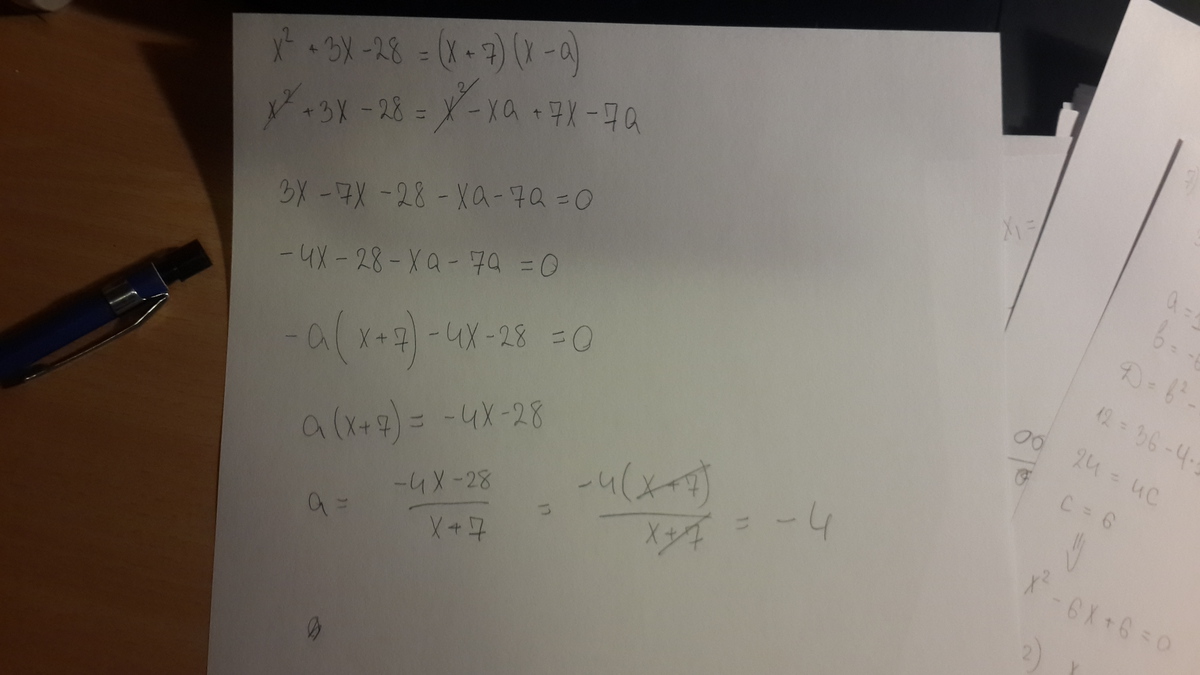 x² + 3x - 28 = (x + 7)(x - a)
x² + 3x - 28 = x² - xa + 7x - 7a
3x - 7x - 28 - xa - 7a = 0
-4x - 28 - xa - 7a = 0
-a(x+7) - 4x - 28 = 0
a(x+7) = -4x - 28
a = \frac{-4x-28}{x+7} = \frac{-4(x+7)}{x+7} = -4
x₁ =
7)
a =
b = -6
D = b² -
12 = 36 - 4·
24 = 4c
c = 6
⇓
x² - 6x + 6 = 0
2)